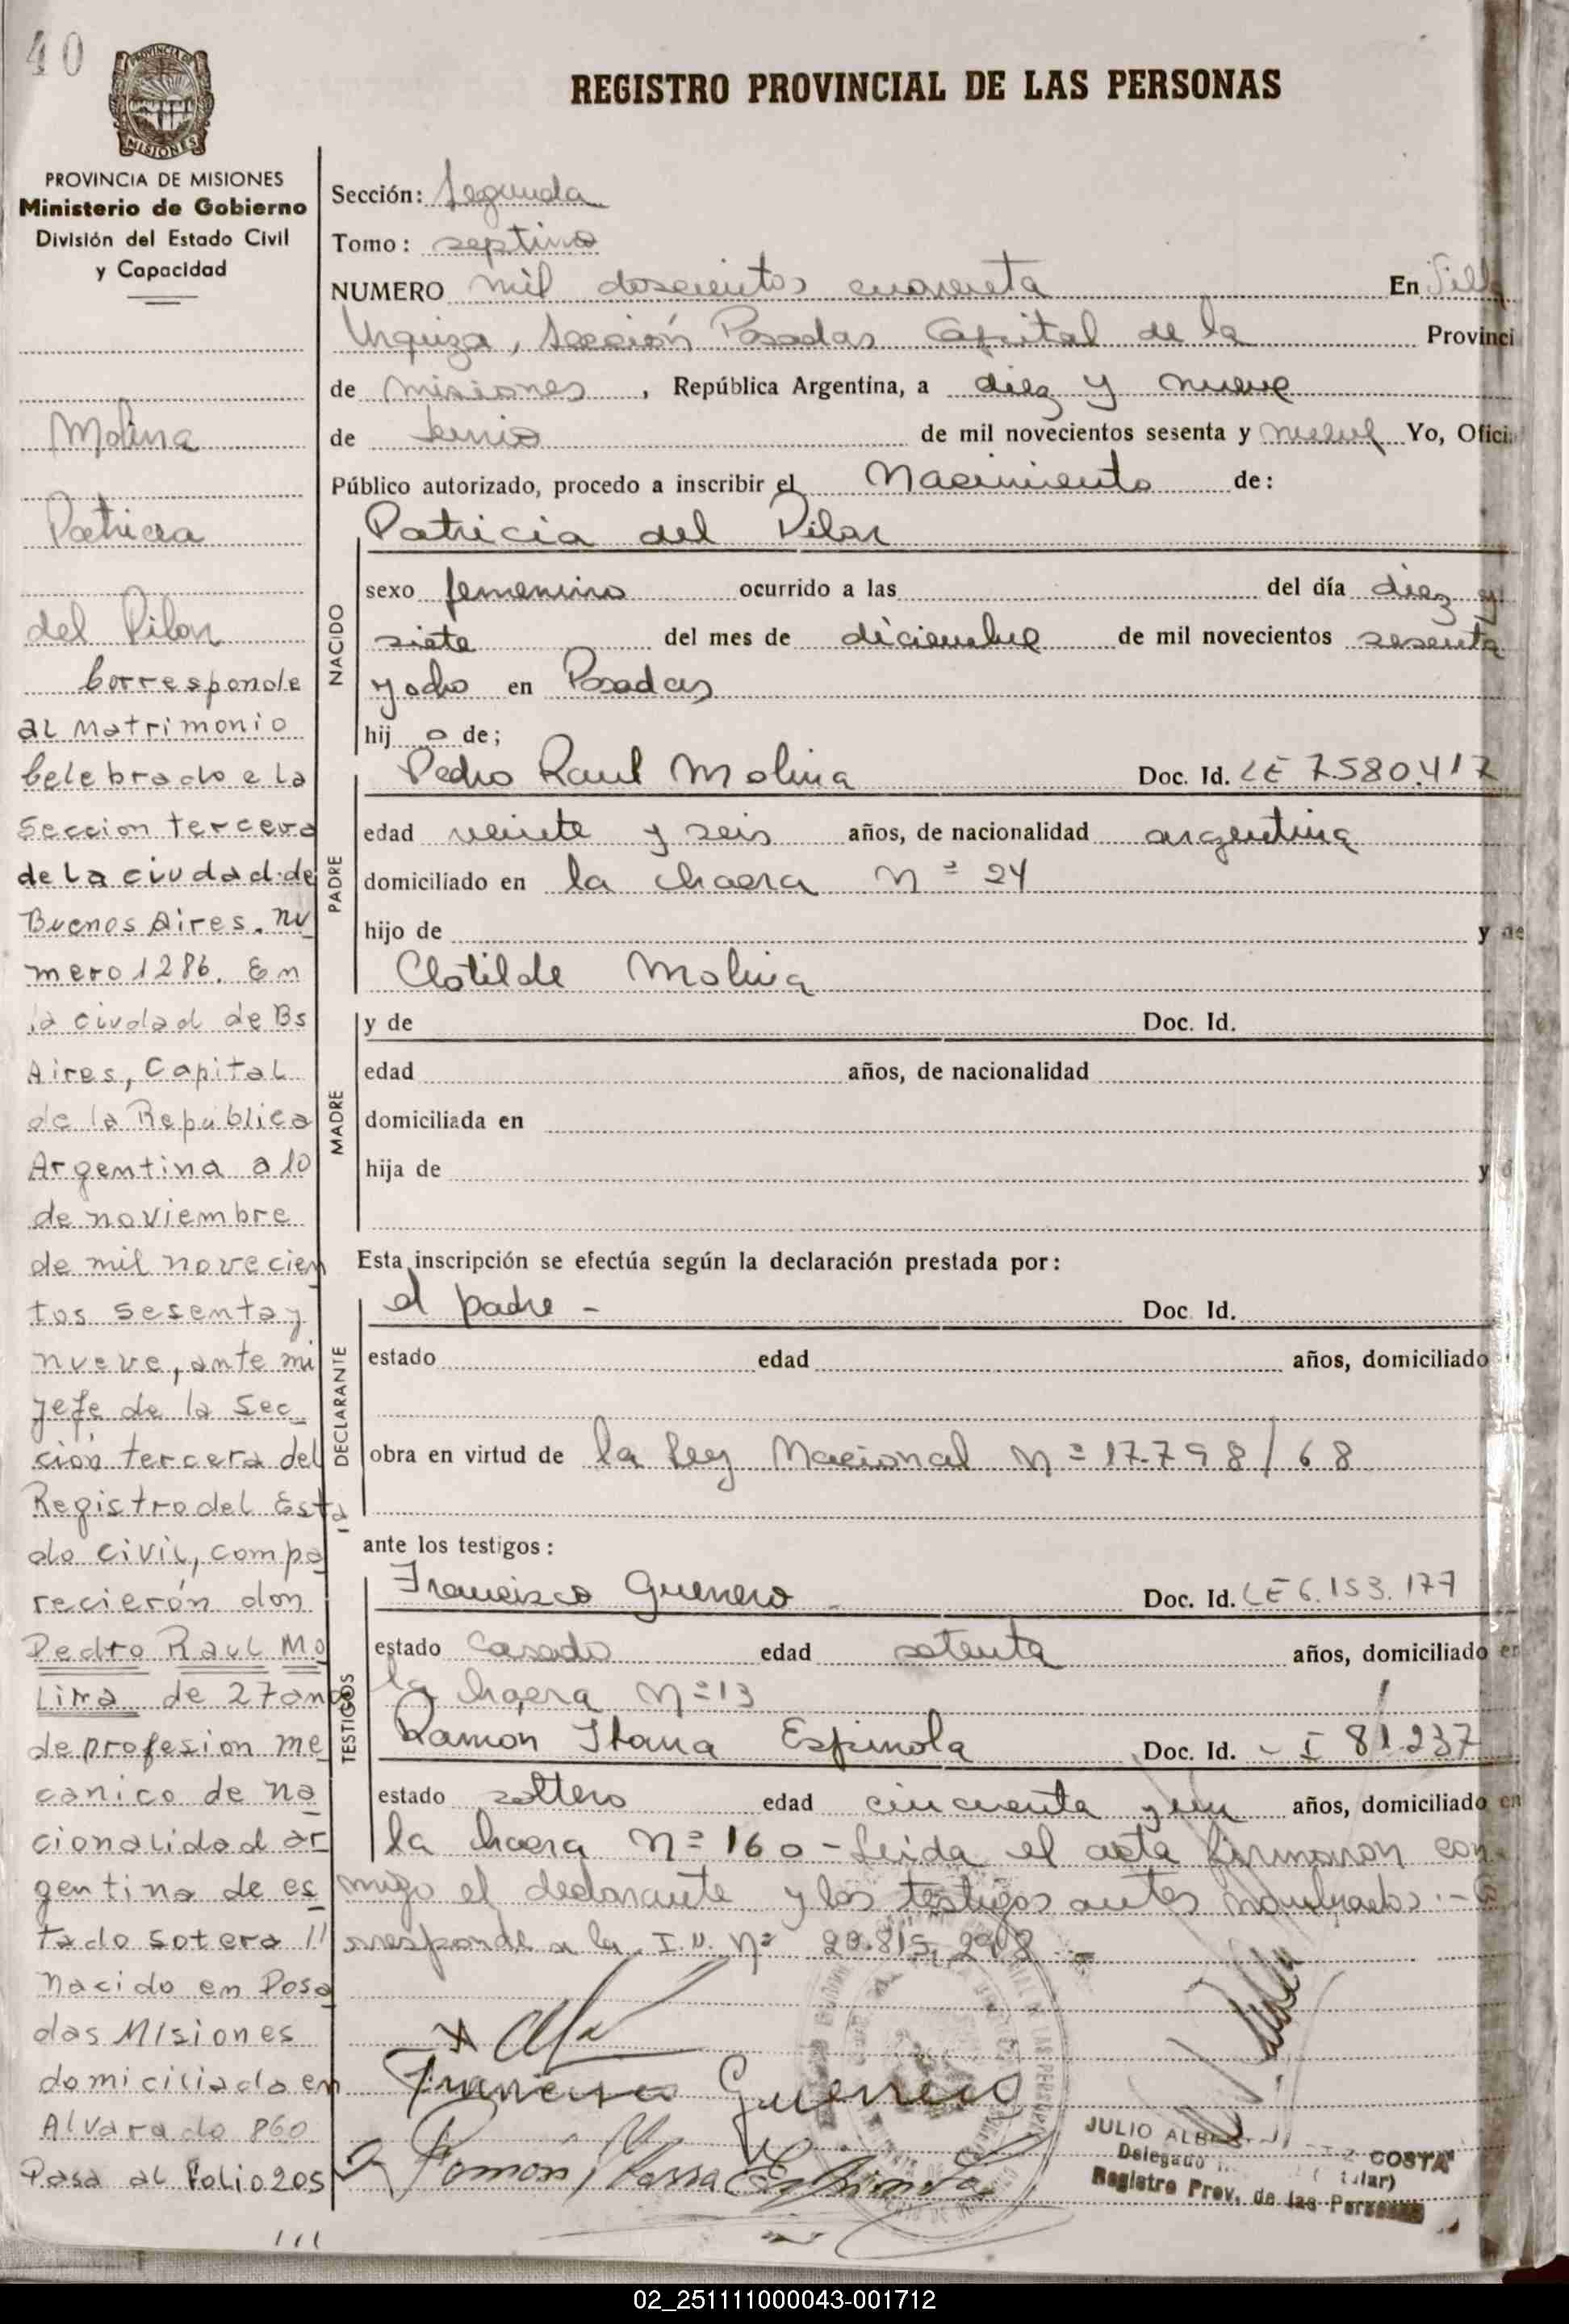 40
PROVINCIA DE MISIONES
Ministerio de Gobierno
División del Estado Civil
y Capacidad
Molina
Patricia
del Pilar
Corresponde
al Matrimonio
Celebrado e la
Seccion tercera
de La ciudad de
Buenos Aires. nu
mero 1286. En
la ciudad de Bs
Aires, Capital
de la República
Argentina a 10
de noviembre
de mil novecien
tos sesenta y
nueve, ante mi
jefe de la Sec
ción tercera del
Registro del Esta
do civil, compa
recierón don
Pedro Raul Mo
Lina de 27 año
de profesion me
canico de na
cionalidad ar
gentina de es
tado sotero
nacido en Posa
das Misiones
domiciliado en
Alvarado 860
Pasa al Folio 205
REGISTRO PROVINCIAL DE LAS PERSONAS
Sección: Segunda
Tomo: septimo
NUMERO mil doscientos cuarenta En Villa
Urquiza, Sección Posadas Capital de la Provinci
de Misiones, República Argentina, a diez y nueve
de Junio de mil novecientos sesenta y nueve Yo, Ofici
Público autorizado, procedo a inscribir el Nacimiento de:
Patricia del Pilar
NACIDO
sexo femenino ocurrido a las del día diez y
siete del mes de diciembre de mil novecientos sesenta
y ocho en Posadas
hij a de;
PADRE
Pedro Raul Molina Doc. Id. LE 7.580.417
edad veinte y seis años, de nacionalidad argentina
domiciliado en la chacra Nº 24
hijo de y de
Clotilde Molina
MADRE
y de Doc. Id.
edad años, de nacionalidad
domiciliada en
hija de y d
Esta inscripción se efectúa según la declaración prestada por:
DECLARANTE
el padre - Doc. Id.
estado edad años, domiciliado
obra en virtud de la Ley Nacional Nº 17.798/68
ante los testigos:
TESTIGOS
Francisco Guerrero Doc. Id. LE 6.153.177
estado casado edad setenta años, domiciliado en
la chacra Nº 13
Ramón Espinola Doc. Id. I 81.237
estado soltero edad cincuenta y un años, domiciliado en
la chacra Nº 160 - Leida el acta firmaron con
migo el declarante y los testigos antes nombrados.-Co
rresponde a la I.D. Nº 20.815.298.-
Francisco Guerrero
Ramón Ibarra Espinola
JULIO COSTA
Delegado
Registro Prov. de las Personas
02_251111000043-001712